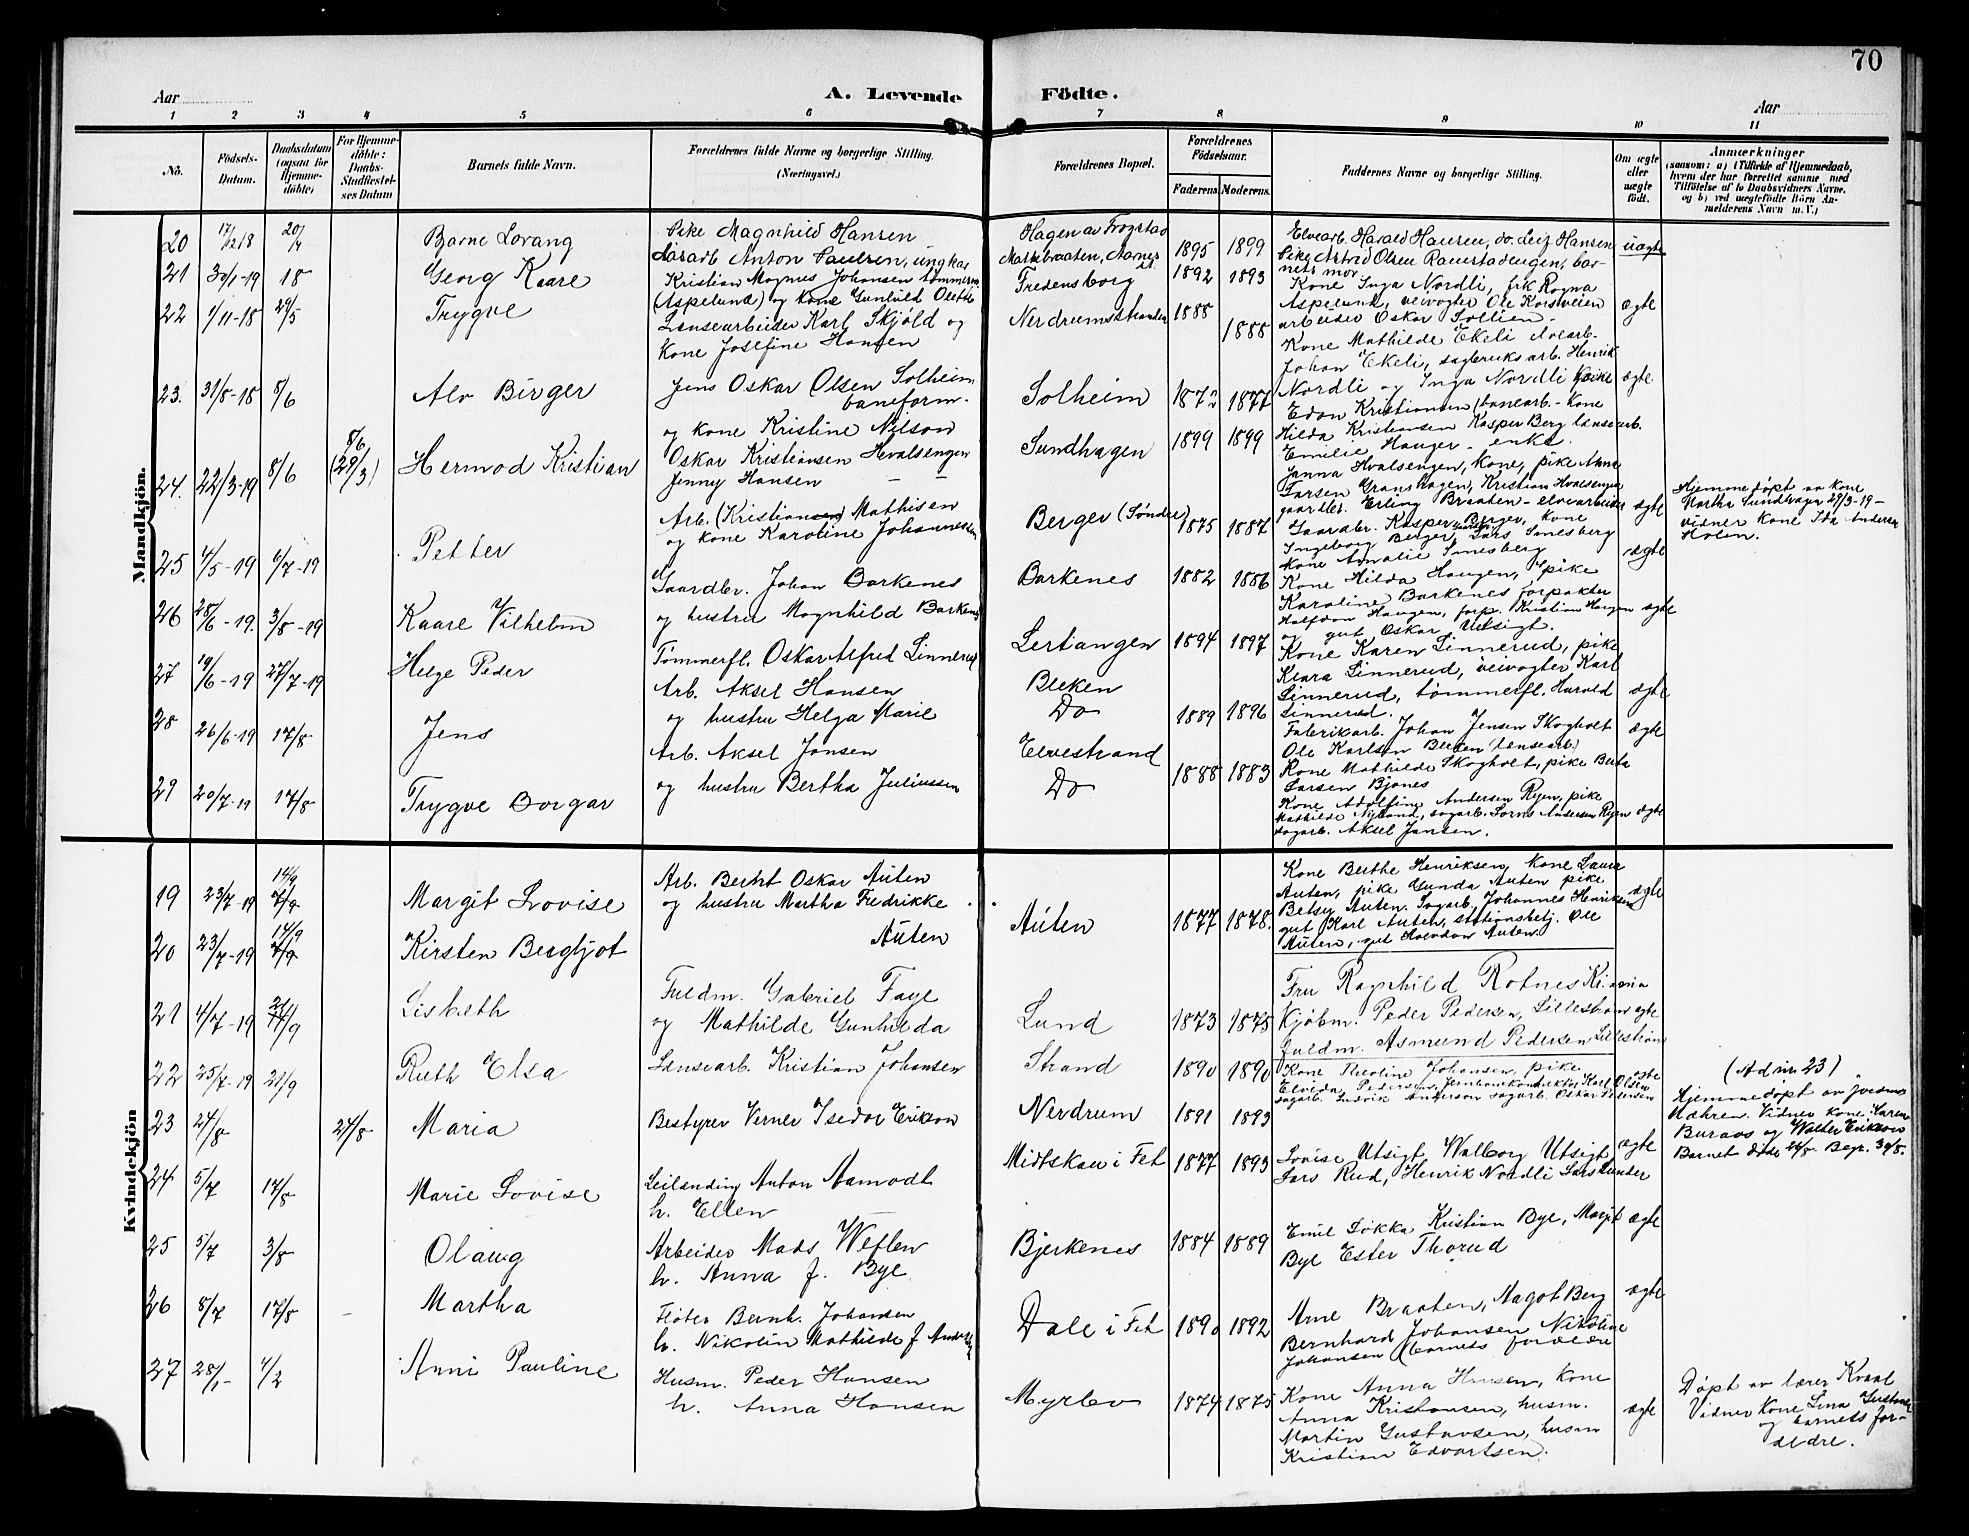 70
Aar
A. Levende Födte.
Aar
1 2 3 4 5 6 7 8 9 10 11
No.
Födsels-Datum.
Daabsdatum (ogsaa for Hjemme-döbte)
For Hjemme-döbte: Daabs-Stadfæstel-ses Datum
Barnets fulde Navn.
Forældrenes fulde Navne og borgerlige Stilling.
(Næringsvei.)
Forældrenes Bopæl.
Forældrenes Födselsaar.
Faderens. Moderens.
Faddernes Navne og borgerlige Stilling.
Om ægte eller uægte födt.
Anmærkninger
(saasom: a) i Tilfælde af Hjemmedaab,
hvem der har forrettet samme med
Tilföielse af to Daabsvidners Navne,
og b) ved uægtefödte Börn An-
melderens Navn m. V.)
Mandkjön.
20 17/12 18 20/4 Bjarne Lorang
Pike Magnhild Hansen
Anton Paulsen, ungkar
Hagen av Frogstad
1895 1899
Elvearb. Harald Hansen, do. Leif Hansen
Pike Astrid Olsen Ramstadengen, bar-
nets mor
uægte
21 30/1-19 18 Georg Kaare
Kristian Magnus Johansen tømmerm.
(Aspelund) og kone Gunhild Olette
Fredensborg
1892 1893
Kone Inga Nordli, frk Ragna
Aspelund, veivogter Ole Korsveien
arbeider Oskar Sollien
ægte
22 1/11-18 29/5 Trygve
Lensearbeider Karl Skjöld og
Kone Josefine Hansen
Nerdrumsstranden
1888 1888
Kone Mathilde Ekeli elvearb.
Johan Ekeli, sagbruksarb. Henrik
Nordli og Inga Nordli
ægte
23. 31/8-18 8/6 Alv Birger
Jens Oskar Olsen Solheim
baneform.
og kone Kristine Nilson
Solheim
1872 1877
Edan Kristiansen banearb. - Kone
Hilda Kristiansen Kasper Berg lensearb.
Emilie Hauger - enke.
24. 22/3-19 8/6 8/6 (29/3) Hermod Kristian
Oskar Kristiansen Hvalsengen
Jenny Hansen
Sundhagen
1899 1899
Janna Hvalsengen, Kone, pike Anna
Larsen Granshagen, Kristian Hvalsengen
gaardbr. Erling Braaten - elvearbeider
ægte
Hjemmedöpt av kone
Martha Sundhagen 29/3-19-
vidner kone Ida Andersen
Holen.
25 4/5-19 6/7-19 Petter
Arb. (Kristiansen) Mathisen
og kone Karoline Johannessen
Berger (Søndre)
1875 1887
Gaardbr. Kasper Berger, Kone
Ingeborg Berger, Lars Smesberg
Kone Amalie Smesberg
ægte
26 28/6-19. 3/8-19 Kaare Vilhelm
Gaardbr. Johan Barkenes
og hustru Magnhild Barkenes
Barkenes
1882 1886
Kone Hilda Haugen, pike
Karoline Barkenes forpakter
Halfdan Haugen, forp. Kristian Haugen
og gut Oskar Utsigt.
ægte
27 19/6-19 27/7-19 Helge Peder
Tømmerfl. Oskar Alfred Linnerud
Lertangen
1894 1897
Kone Karen Linnerud, pike
Klara Linnerud, veivogter Karl
Linnerud, tømmerfl. Harald
Linnerud.
ægte
28 26/6-19 17/8 Jens
Arb. Aksel Hansen
og hustru Helga Marie
Bleken
Do
1889 1896
Fabrikarb. Johan Jensen Skogholt
Ole Karlsen Bleken (lensearb.)
Kone Mathilde Skogholt, pike Berta
Larsen Bjønes
ægte
29 20/7-19 17/8 Trygve Borgar
Arb. Aksel Jansen
og hustru Bertha Juliussen
Elvestrand
Do
1888 1883
Kone Adolfine Andersen Ryen, pike
Mathilde Nyland, sagarb. Andersen Ryen
sagarb. Aksel Jansen.
ægte
Kvindekjön
19 23/7-19 14/9 Margit Lovise
20 23/7-19 14/9 Kirsten Bergljot
Arb. Bernt Oskar Auten
og hustru Martha Fredrikke
Auten
Auten
1877 1878.
Kone Berthe Henriksen, kone Laura
Auten, pike Gunda Auten pike
Betsy Auten. Sagarb. Johannes Henriksen
gut Karl Auten, stationsbetj. Ole
Auten, gut Halvdan Auten.
ægte
21 4/7-19 21/9 Lisbeth
Fuldm. Gabriel Faye
og Mathilde Gunhilda
Lund
1873 1875
Fru Ragnhild Rotnes Kr.ania
Kjøbm. Peder Pedersen, Lillestrøm
fuldm. Asmund Pedersen Lillestrøm
ægte
22 25/7-19 21/9 Ruth Elsa
Lensearb. Kristian Johansen
Strand
1890 1890
Kone Theoline Johansen, pike
Elvida Pedersen, Jernbanekonduktør Karl Olsen
sagarb. Ludvik Anderson sagarb. Oskar Pedersen
ægte
23 24/8 24/8 Maria
Bestyrer Verner Isedor Erikson
Nerdrum
1891 1893
(Ad nr 23)
Hjemmedöpt av jordmor
Mæhren. Vidner kone Karen
Buraas og Walter Erikson
Barnet døde 26/8. Begr. 30/8.
24 5/7 17/8 Marie Lovise
Leilending Anton Aamodt
h. Ellen
Midtskau i Fet
1877 1893
Lovise Utsigt Walborg Utsigt
Lars Rud, Henrik Nordli
ægte
25 5/7 3/8 Olaug
Arbeider Mads Weflen
h. Anna f. Bye
Bjerkenes
1884 1889
Emil Løkka Kristian Bye, Margit
Bye Ester Thorud
ægte
26 8/7 17/8 Martha
Fløter Bernh. Johansen
h. Nikolin Mathilde f.
Dale i Fet
1890 1892
Arne Braaten, Aagot Berg
Bernhard Johansen Nikoline
Johansen (barnets forældre
ægte
27 28/1- 4/2 Anni Pauline
Husm. Peder Hansen
h. Anna Hansen
Myrlev
1874 1875
Kone Anna Hansen, kone
Anna Kristiansen, husm.
Martin Gustavsen, husm
Kristian Edvartsen.
ægte
Døpt av lærer Kvaal
Vidner Kone Lina
og barnets for-
ældre.